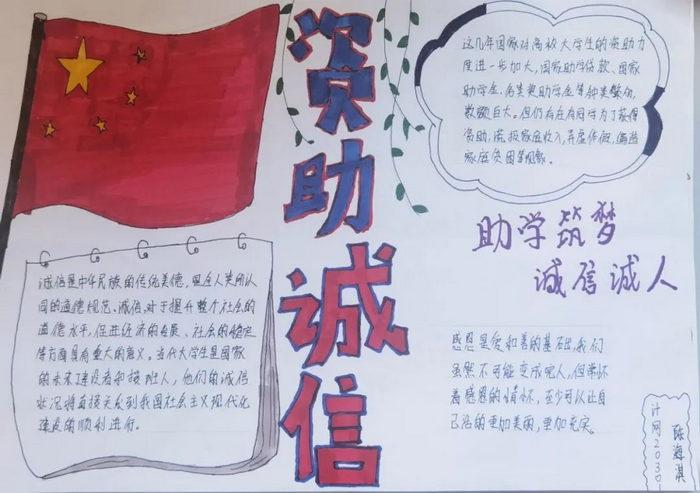 资助诚信
这几年国家对高校大学生的资助力
度进一步加大,国家助学贷款、国家
助学金、各类奖助学金等种类繁多,
数额巨大。但仍存在有同学为了获得
资助,谎报家庭收入,弄虚作假,编造
家庭贫困等现象。
助学筑梦
诚信诚人
诚信是中华民族的传统美德,更是人类所认
同的道德规范。诚信,对于提升整个社会的
道德水平,促进经济的发展、社会的稳定
等方面具有重大的意义。当代大学生是国家
的未来建设者和接班人,他们的诚信
状况将直接关系到我国社会主义现代化
建设的顺利进行。
感恩是爱和善的基础,我们
虽然不可能变成完人,但常怀
着感恩的情怀,至少可以让自
己活的更加美丽,更加充实。
计网20301
陈海淇